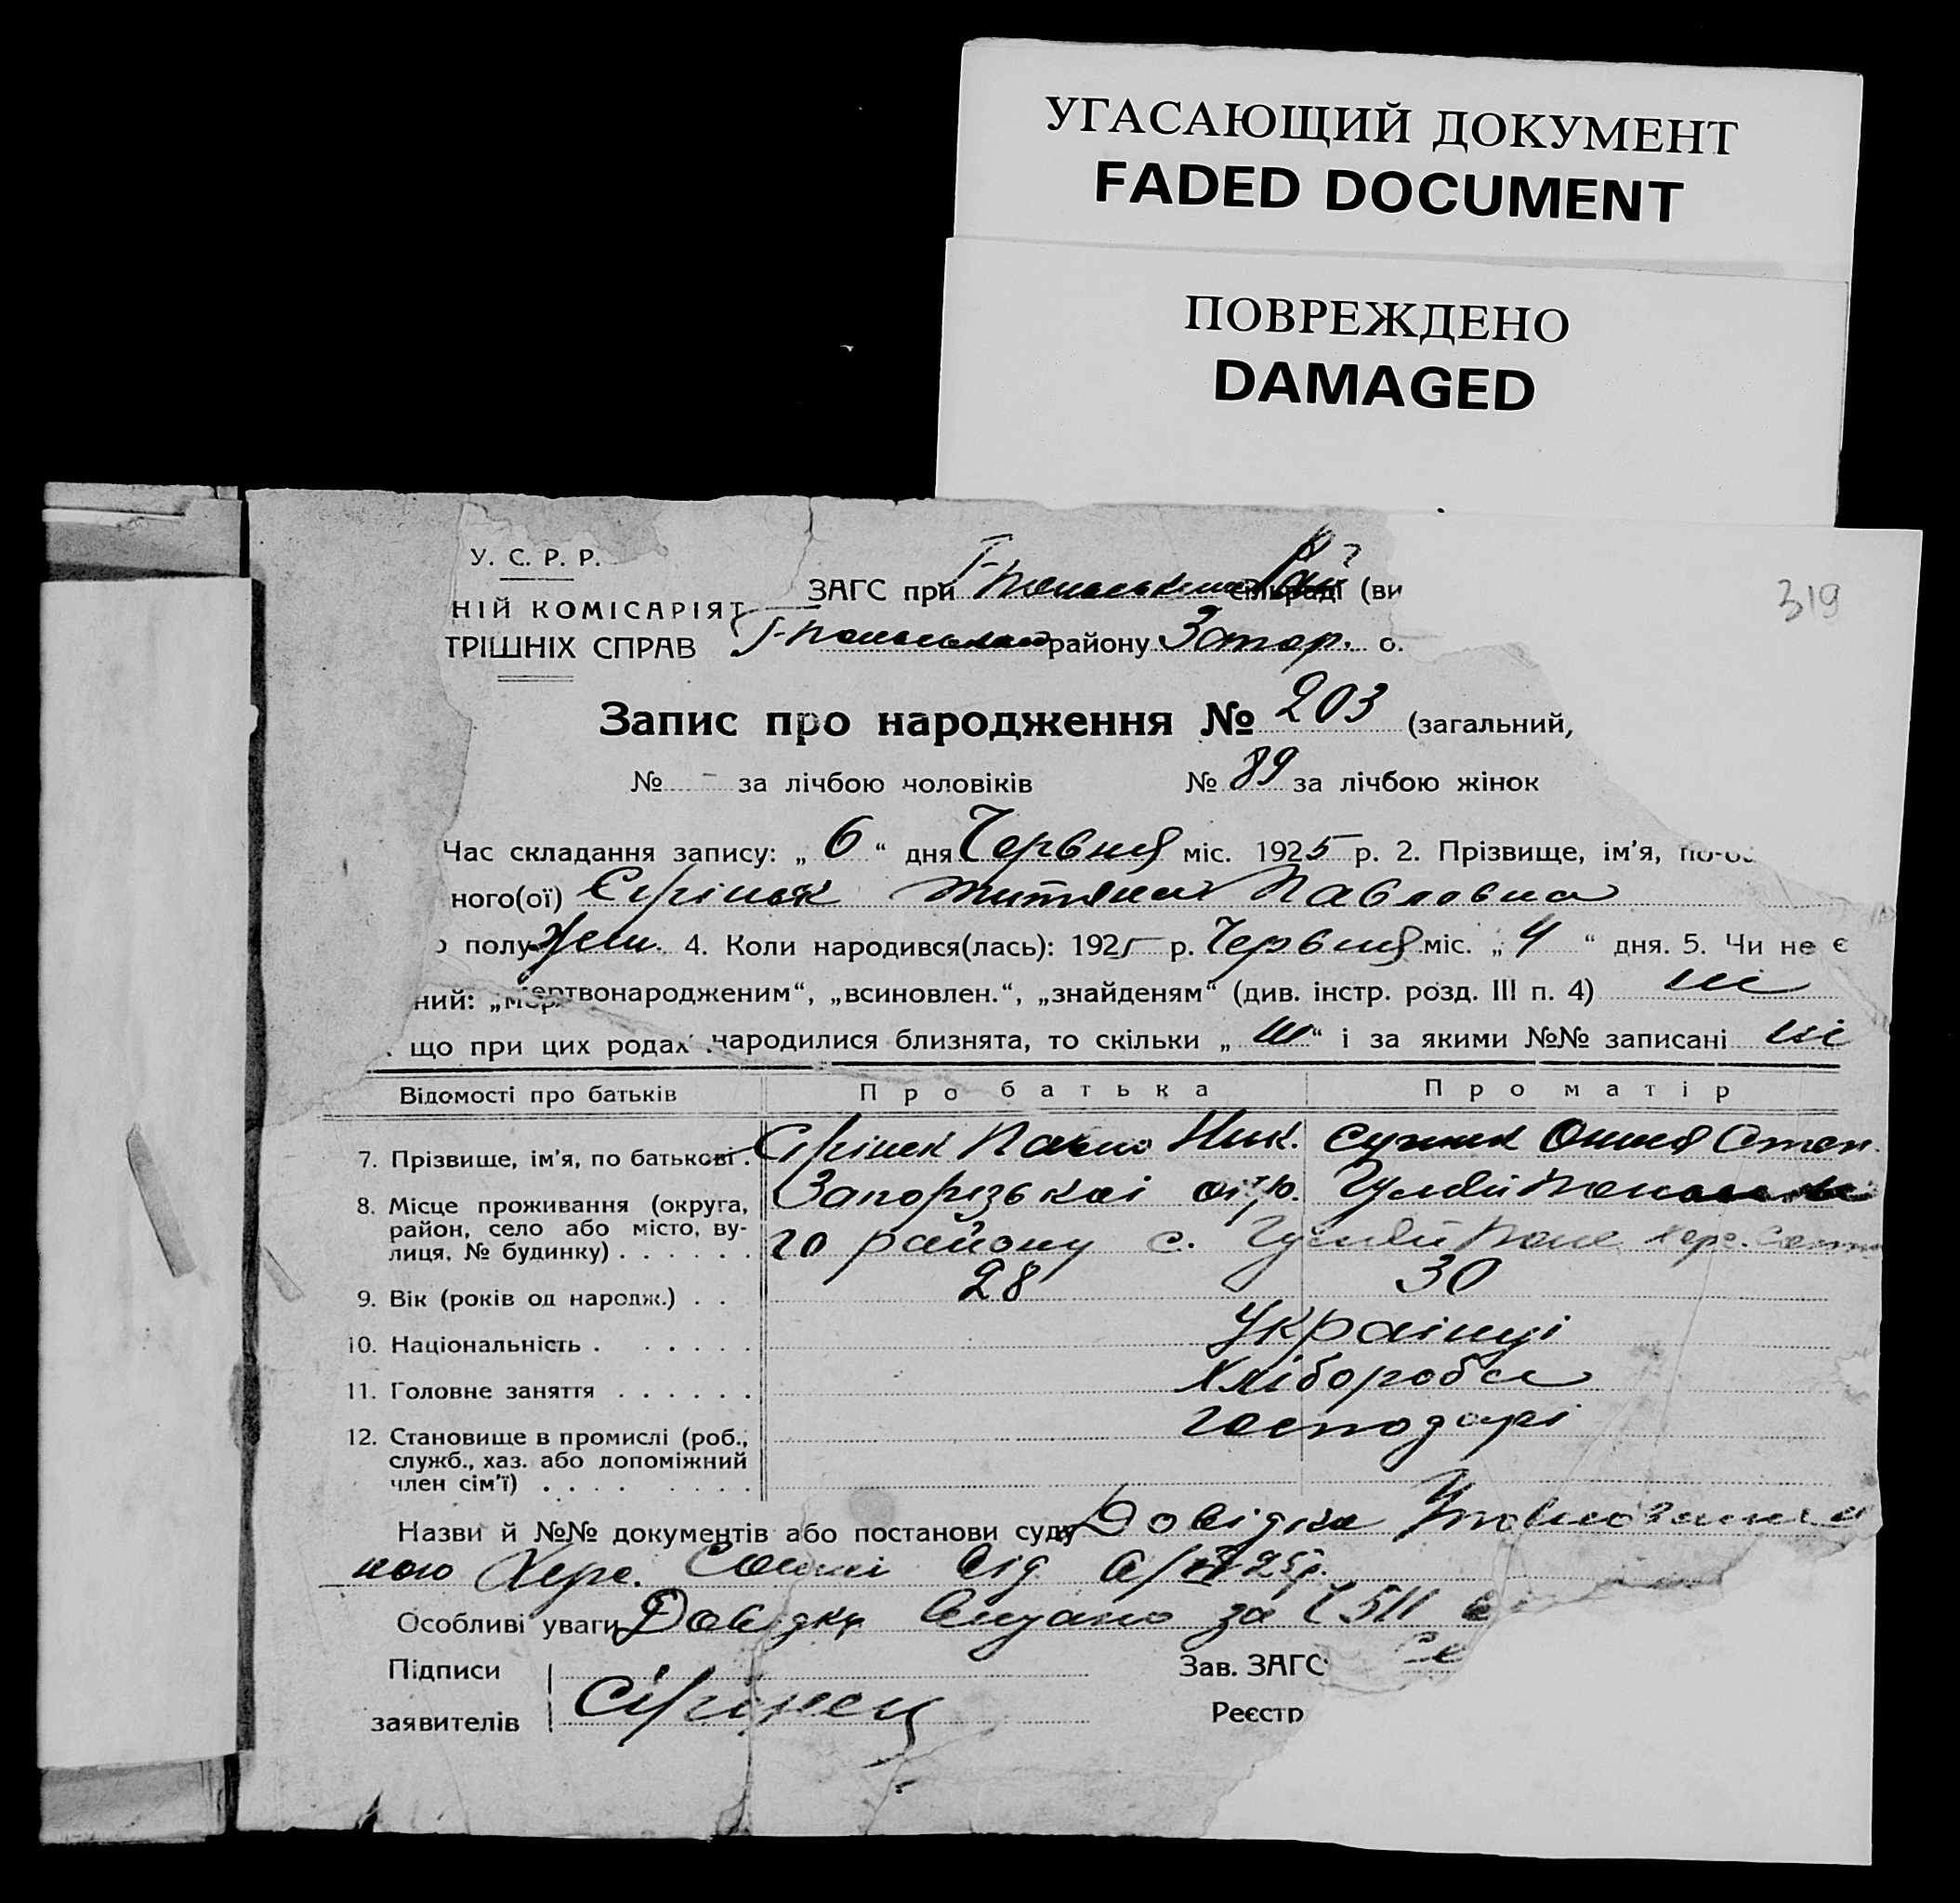 УГАСАЮЩИЙ ДОКУМЕНТ
FADED DOCUMENT
ПОВРЕЖДЕНО
DAMAGED
319
У. С. Р. Р.
НІЙ КОМІСАРІЯТ
ТРІШНІХ СПРАВ
ЗАГС при сільраді (ви
району Запор. о.
Запис про народження № 203 (загальний,
№ - за лічбою чоловіків № 89 за лічбою жінок
Час складання запису: „ 6 “ дня Червня міс. 1925 р. 2. Прізвище, ім’я,
ного(ої) Павловна
полу жен. 4. Коли народився(лась): 1925 р. Червня міс. „ 4 “ дня. 5. Чи не є
ний: „мертвонародженим“, „всиновлен.“, „знайденям“ (див. інстр. розд. III п. 4) ні
що при цих родах народилися близнята, то скільки „ ні “ і за якими №№ записані ні
Відомості про батьків Про батька Про матір
7. Прізвище, ім’я, по батькові . Павло Ник. Степ.
8. Місце проживання (округа, район, село або місто, вулиця, № будинку) . . . . . . Запорізькоі окр. Гуляй
го району с. Гуляй Поле Херс.
9. Вік (років од народж.) . . 28 30
10. Національність . . . . . . Украінці
11. Головне заняття . . . . . . Хлібороби
12. Становище в промислі (роб., служб., хаз. або допоміжний член сім’ї) . . . . . . . . господарі
Назви й №№ документів або постанови суду Довідка
ною Херс. від
Особливі уваги Довідку видано за 511
Підписи
заявителів
Зав. ЗАГС
Реєстр